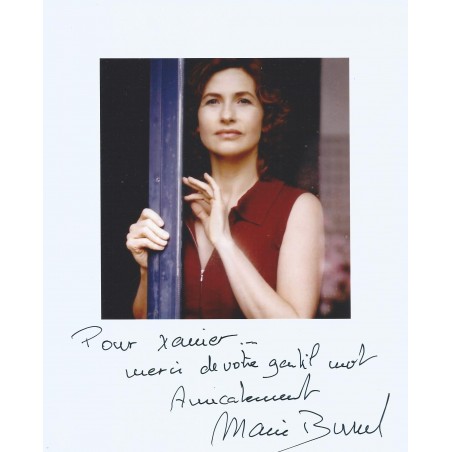 Pour Xavier...
merci de votre gentil mot
Amicalement
Marie Bunel